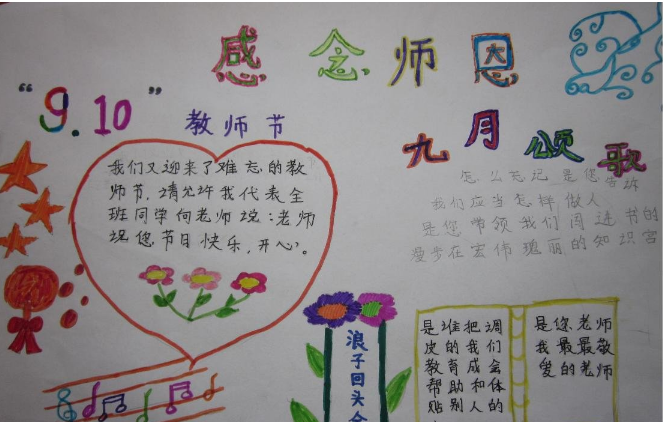 感念师恩
“9.10”
教师节
我们又迎来了难忘的教
师节,请允许我代表全
班同学向老师说:老师
祝您节日快乐,开心。
九月颂歌
怎么忘记是您告诉
我们应当怎样做人
是您带领我们周进书的
漫步在宏伟瑰丽的知识宫
浪子回头金
是谁把调
皮的我们
教育成会
帮助和体
贴别人的
是您老师
我最最敬
爱的老师